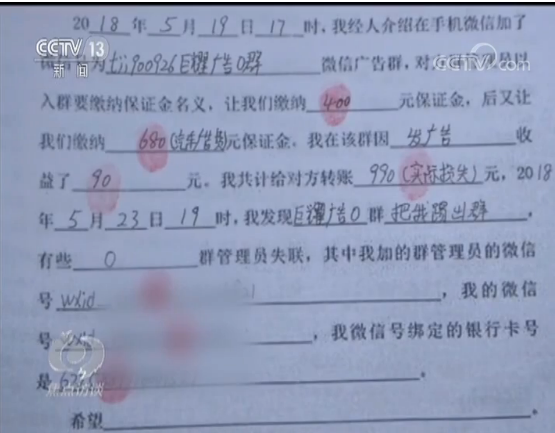 CCTV 13
新闻
CCTV.com
2018 年 5 月 19 日 17 时,我经人介绍在手机微信加了
900926巨耀广告0群 微信广告群,对
入群要缴纳保证金名义,让我们缴纳 400 元保证金,后又让
我们缴纳 680 元保证金。我在该群因 发广告 收
益了 90 元。我共计给对方转账 990(实际损失)元,2018
年 5 月 23 日 19 时,我发现巨耀广告0 群 把我踢出群 ,
有些 0 群管理员失联,其中我加的群管理员的微信
号 wxid ,我的微信
号 wxid ,我微信号绑定的银行卡号
是 62 。
希望
焦点访谈